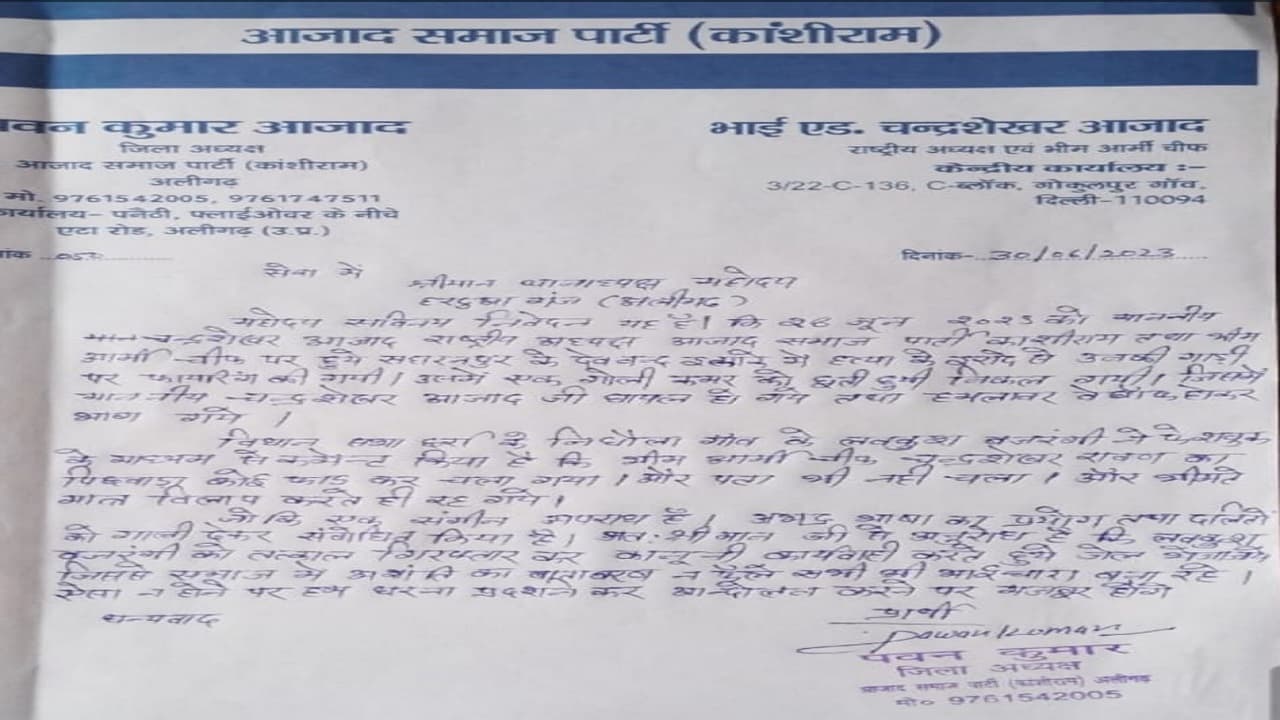 आजाद समाज पार्टी (कांशीराम)
पवन कुमार आजाद
जिला अध्यक्ष
आजाद समाज पार्टी (कांशीराम)
अलीगढ़
मो. 9761542005, 9761747511
कार्यालय- पनैठी, फ्लाईओवर के नीचे
एटा रोड, अलीगढ़ (उ.प्र.)
भाई एड. चन्द्रशेखर आजाद
राष्ट्रीय अध्यक्ष एवं भीम आर्मी चीफ
केन्द्रीय कार्यालय :-
3/22-C-136, C-ब्लॉक, गोकुलपुर गॉव,
दिल्ली-110094
दिनांक- 30/06/2023
सेवा में
श्रीमान थानाध्यक्ष महोदय
हरदुआ गंज (अलीगढ)
महोदय सविनय निवेदन यह है। कि २८ जून २०२३ को माननीय
चन्द्रशेखर आजाद राष्ट्रीय अध्यक्ष आजाद समाज पार्टी काशीराम तथा भीम
आर्मी चीफ पर हुये सहारनपुर के देवबन्द में हत्या के से उनकी गाड़ी
पर फायरिंग की गयी। उसमें एक गोली कमर को छूती हुयी निकल गयी। जिसमें
माननीय चन्द्रशेखर आजाद जी घायल हो गये तथा हमलावर होकर
भाग गये।
विधान सभा के गांव के लवकुश बजरंगी ने फेसबुक
के माध्यम से कमेन्ट किया है कि भीम आर्मी चीफ चन्द्रशेखर रावण का
पिछवाडा कोई फाड कर चला गया। और पता भी नहीं चला। और भीमटे
मात्र विलाप करते ही रह गये।
जो कि एक संगीन अपराध है। अभद्र भाषा का प्रयोग तथा दलितो
को गाली देकर संबोधित किया है। अतः श्रीमान जी से अनुरोध है कि लवकुश
बजरंगी को तत्काल गिरफ्तार कर कानूनी कार्यवाही करते हुये जेल
जिससे समाज मे अशांति का वातावरण न फैले सभी भाईचारा बना रहे।
ऐसा न होने पर हम धरना प्रदर्शन कर आन्दोलन करने पर मजबूर होंगे
धन्यवाद
प्रार्थी
Pawan kumar
पवन कुमार
जिला अध्यक्ष
आजाद समाज पार्टी (कांशीराम) अलीगढ़
मो० 9761542005